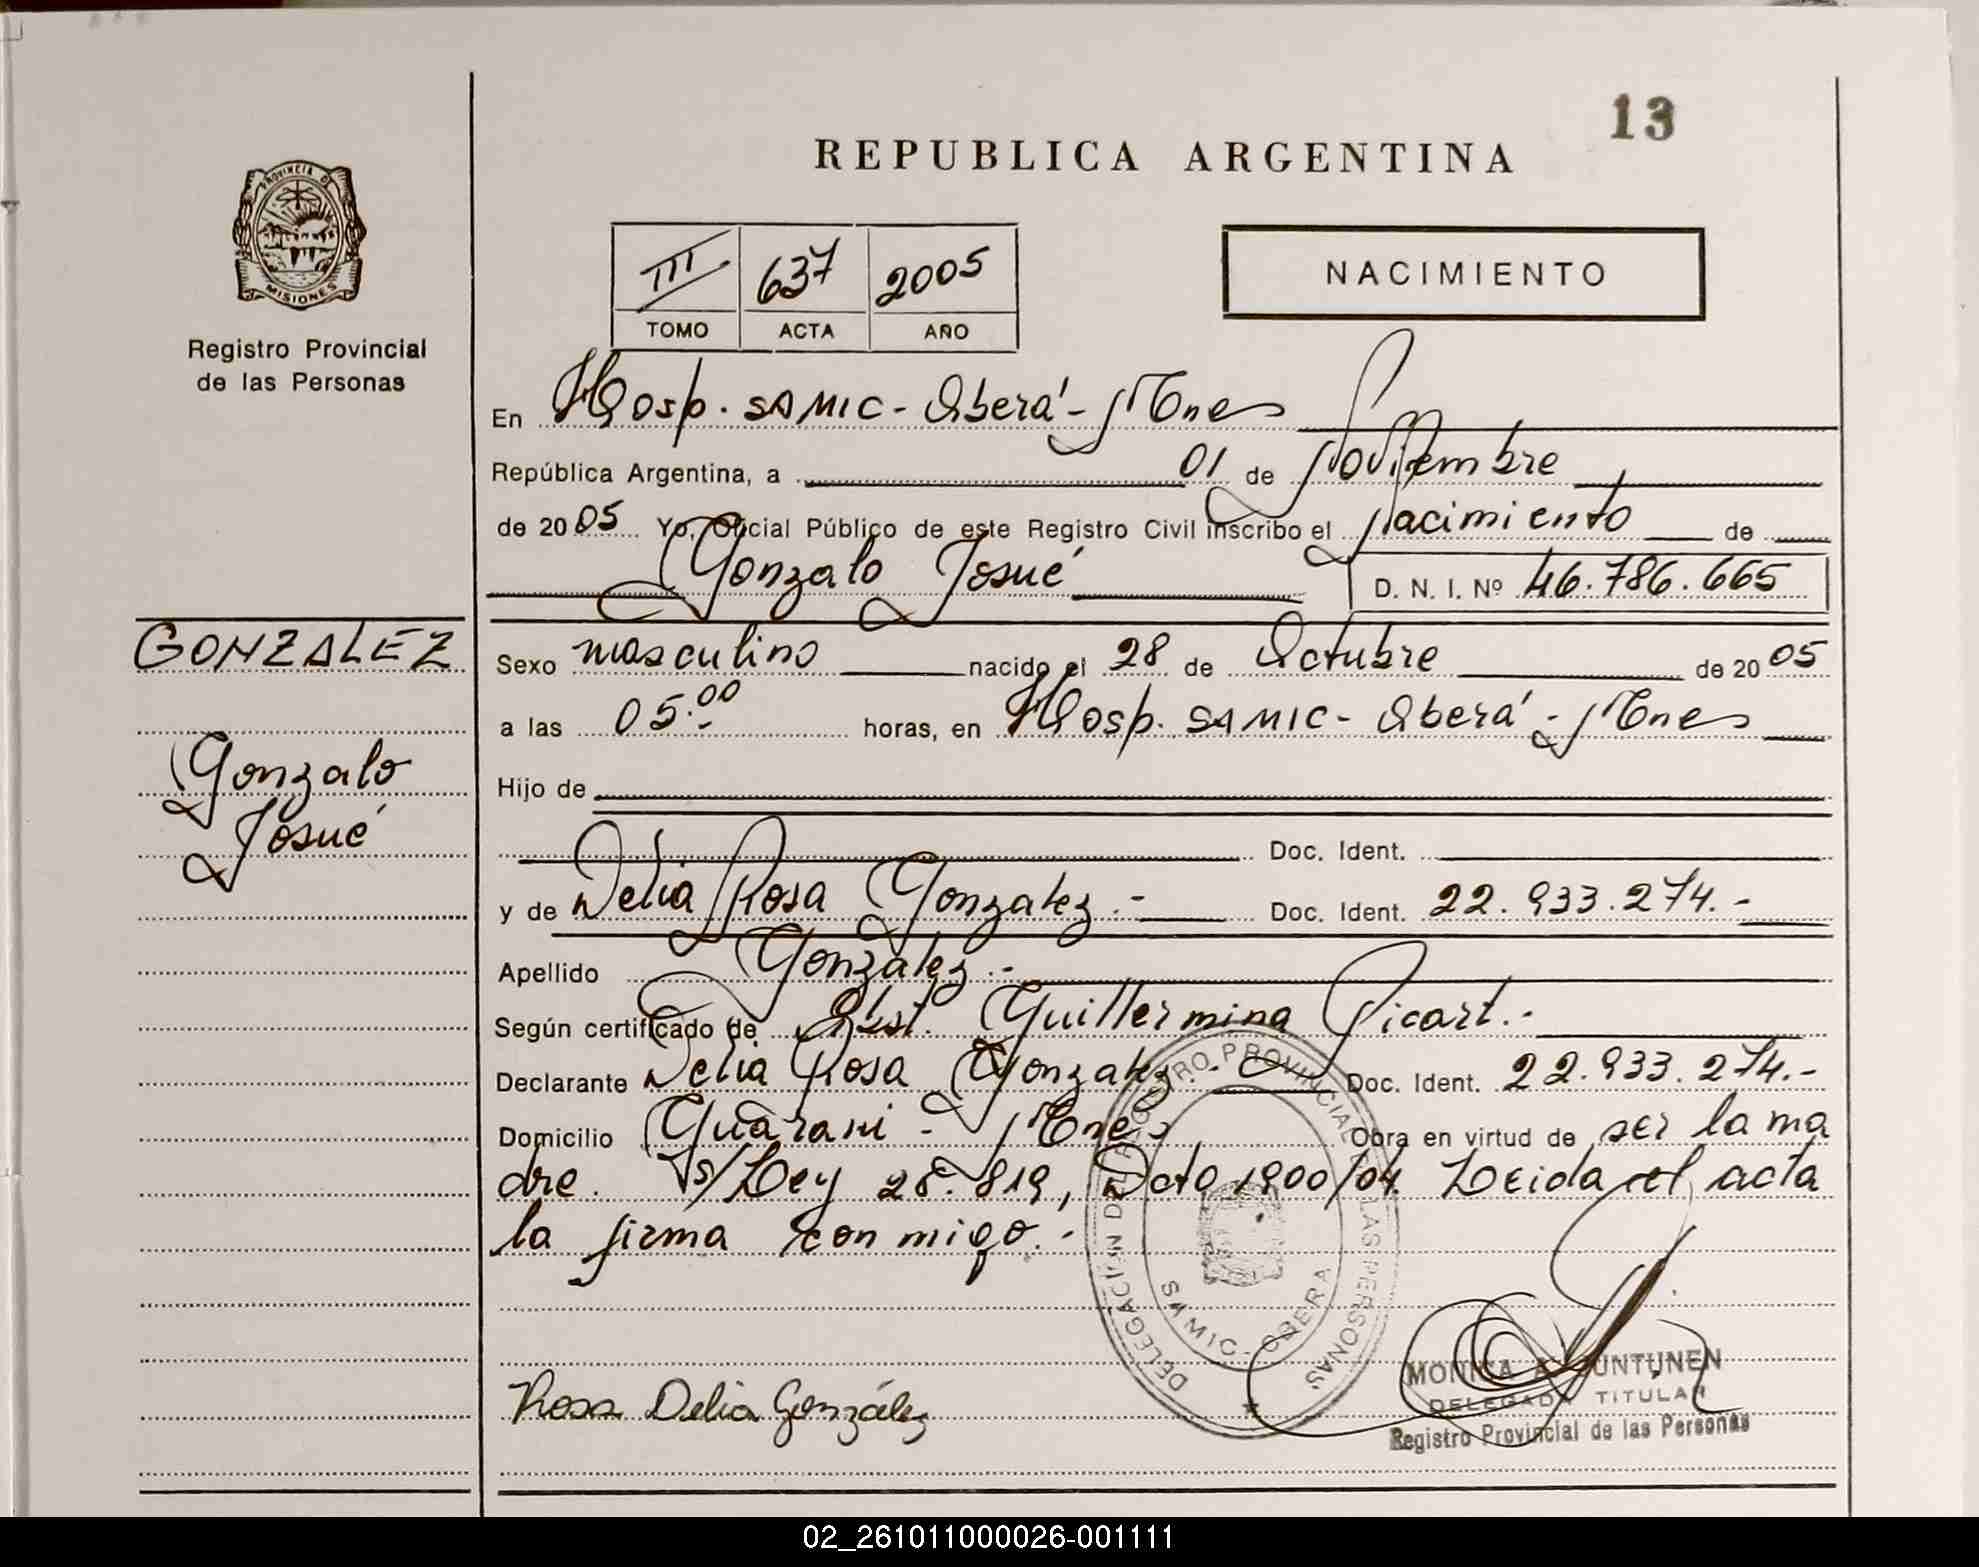 13
REPUBLICA ARGENTINA
PROVINCIA DE
MISIONES
Registro Provincial
de las Personas
III 637 2005
TOMO ACTA AÑO
NACIMIENTO
En Hosp. SAMIC - Oberá - Mnes
República Argentina, a 01 de Noviembre
de 2005 Yo, Oficial Público de este Registro Civil inscribo el Nacimiento de
Gonzalo Josué D. N. I. Nº 46.786.665
GONZALEZ
Gonzalo
Josué
Sexo masculino nacido el 28 de Octubre de 2005
a las 05:00 horas, en Hosp. SAMIC - Oberá - Mnes
Hijo de
Doc. Ident.
y de Delia Rosa Gonzalez.- Doc. Ident. 22.933.274.-
Apellido Gonzalez.-
Según certificado de Obst. Guillermina Picart.-
Declarante Delia Rosa Gonzalez.- Doc. Ident. 22.933.274.-
Domicilio Guarani - Mnes Obra en virtud de ser la ma
dre. s/Ley 28.819, Dcto 1900/04. Leida el acta
la firma conmigo.-
DELEGACIÓN DEL REGISTRO PROVINCIAL DE LAS PERSONAS
SAMIC - OBERA
Rosa Delia González
MONICA A. UNTUNEN
DELEGADA TITULAR
Registro Provincial de las Personas
02_261011000026-001111